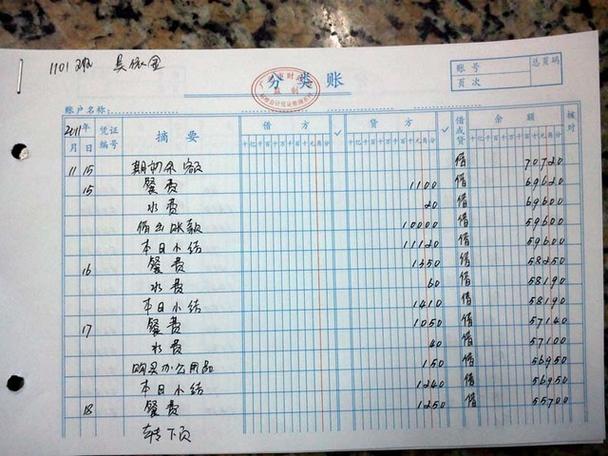 1101班
分类账
账号
页次
总页码
账户名称：
2011年 凭证编号 摘要 借方 ✓ 贷方 ✓ 借或贷 余额 核对
月 日 千亿千百十万千百十元角分 千亿千百十万千百十元角分 千亿千百十万千百十元角分
11 15 期初余额 借 70720
15 餐费 1100 借 69620
水费 20 借 69600
借出账款 10000 借 59600
本日小结 11120 借 59600
16 餐费 1350 借 58250
水费 60 借 58190
本日小结 1410 借 58190
17 餐费 1050 借 57140
水费 40 借 57100
购买办公用品 150 借 56950
本日小结 1240 借 56950
18 餐费 1250 借 55700
转下页